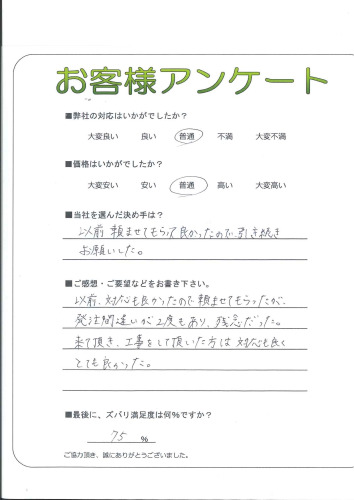 お客様アンケート
■弊社の対応はいかがでしたか?
大変良い 良い 普通 不満 大変不満
■価格はいかがでしたか?
大変安い 安い 普通 高い 大変高い
■当社を選んだ決め手は?
以前 頼ませてもらって良かったので引き続き
お願いした。
■ご感想・ご要望などをお書き下さい。
以前、対応も良かったので頼ませてもらったが、
発注間違いが2度もあり、残念だった。
来て頂き、工事をして頂いた方は対応も良く
とても良かった。
■最後に、ズバリ満足度は何%ですか?
75 %
ご協力頂き、誠にありがとうございました。